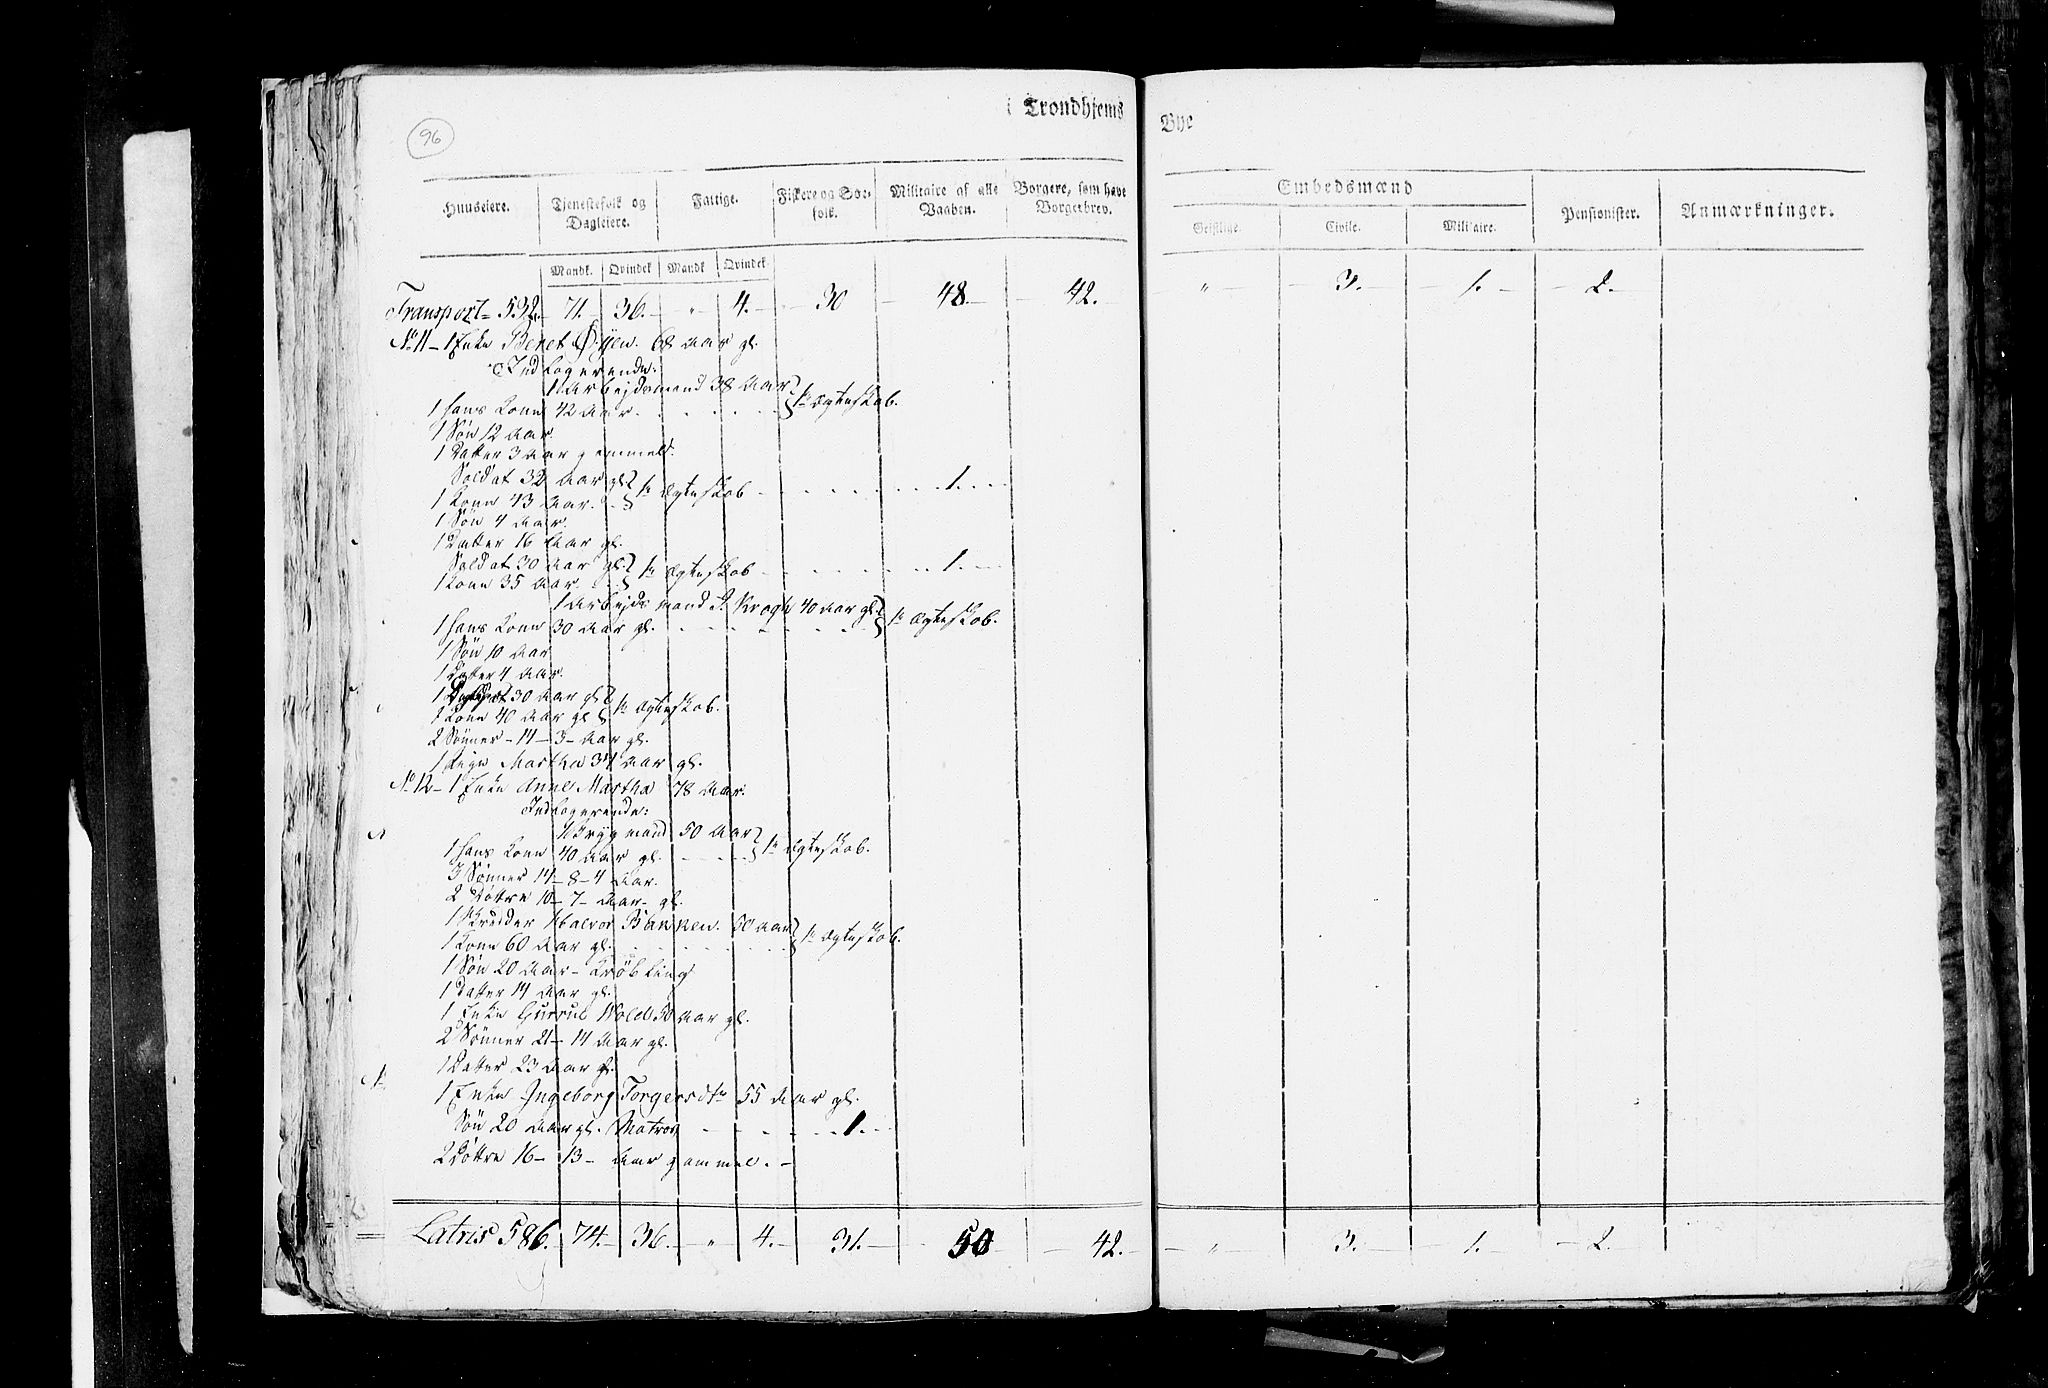 96
i Trondhjems Bye
Huuseiere. Tjenestefolk og Dagleiere. Fattige. Fiskere og Søefolk. Militaire af alle Vaaben. Borgere, som have Borgerbrev. Embedsmænd Pensionister. Anmærkninger.
Geistlige. Civile. Militaire.
Mandk. Qvindek Mandk Qvindek
Transport 532. 71. 36. " 4. 30 48. 42. " 3. 1. 2.
No 11 - 1 Enke Beret Øyen. 68 Aar gl.
Indlogerende:
1 Arbejdsmand 38 Aar
1 hans Kone 42 Aar. 1te Ægteskab.
1 Søn 12 Aar.
1 Datter 3 Aar gammel.
Soldat 32 Aar gl
1 Kone 43 Aar. 1te Ægteskab 1.
1 Søn 4 Aar.
1 Datter 16 Aar gl.
Soldat 30 Aar gl
1 Kone 35 Aar 1te Ægteskab 1.
1 Arbejdsmand P. Krogh 40 Aar gl
1 hans Kone 30 Aar gl. 1te Ægteskab.
1 Søn 10 Aar
1 Datter 4 Aar.
1 30 Aar gl
1 Kone 40 Aar gl 1te Ægteskab.
2 Sønner - 14 - 3 - Aar gl.
1 Pige Martha 34 Aar gl.
No 12 - 1 Enke Anne Martha 78 Aar.
Indlogerende:
1 Brygmand 50 Aar
1 hans Kone 40 Aar gl. 1te Ægteskab.
3 Sønner 14 - 8 - 4 Aar.
2 Døttre 10 - 7 - Aar - gl.
1 Halvor Bakken. 50 Aar
1 Kone 60 Aar gl. 1te Ægteskab.
1 Søn 20 Aar - Krøbling
1 Datter 14 Aar gl.
1 Enke Gurrul Wold 50 Aar gl.
2 Sønner 21 - 14 Aar gl.
1 Datter 23 Aar gl.
1 Enke Ingeborg Torgersdtr 55 Aar gl.
Søn 20 Aar gl. Matros 1.
2 Døttre 16 - 13 - Aar gammel. -
Latris 586. 74. 36. " 4. 31. 50 42. " 3. 1. 2.